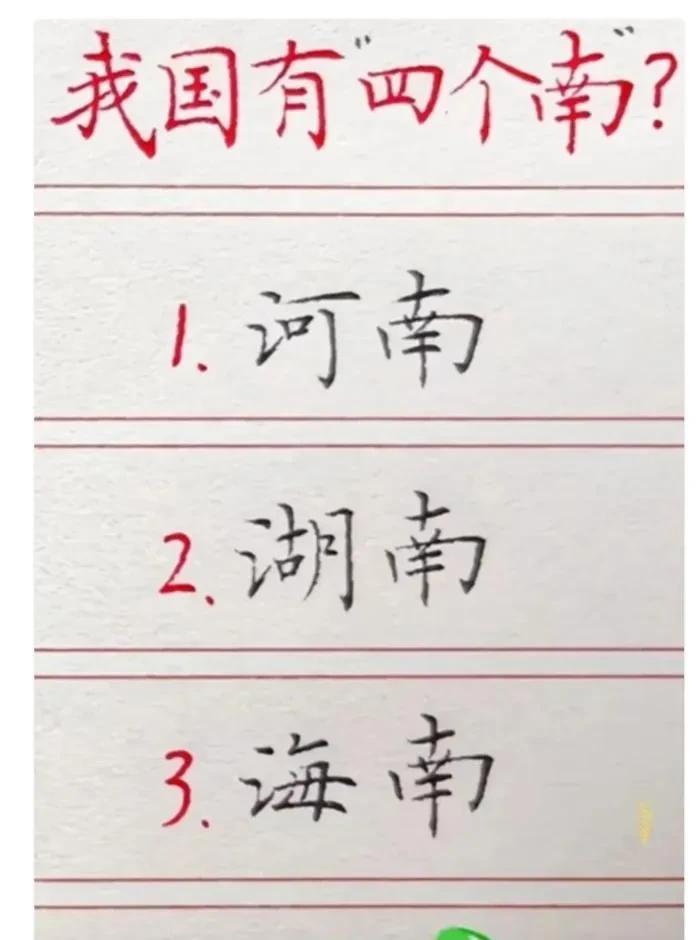 我国有“四个南”?
1.河南
2.湖南
3.海南